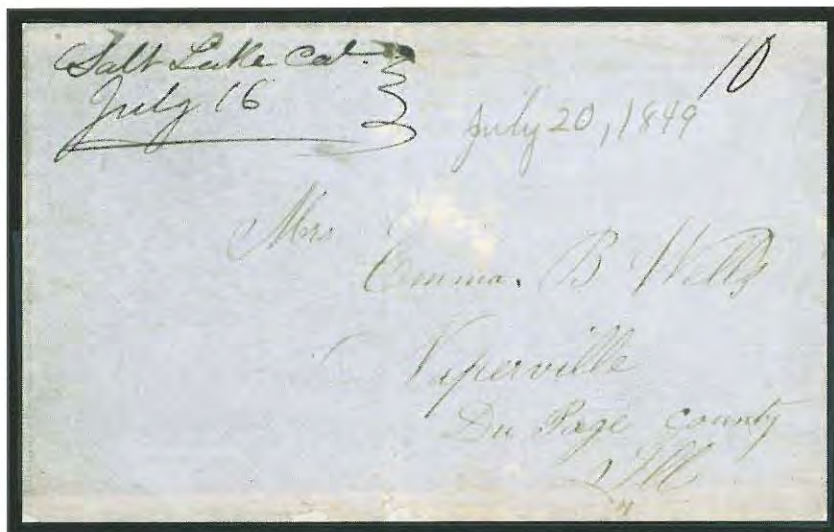 Salt Lake Cal.
July 16
10
July 20, 1849
Mrs
Emma. B Wells
Naperville
Du Page county
Ill